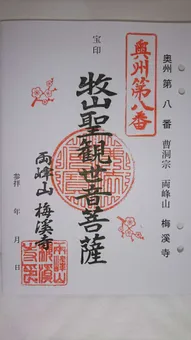 奥州第八番
曹洞宗 両峰山 梅溪寺
奥州第八番
宝印
牧山聖観世音菩薩
両峰山 梅溪寺
参拝 年 月 日